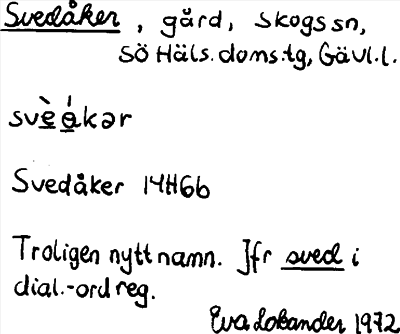 Svedåker, gård, Skogs sn,
SÖ Häls. doms.tg, Gävl.l.
svè̱ á̱kər
Svedåker 14H6b
Troligen nytt namn. Jfr sved i
dial.-ordreg.
Eva Lobander 1972